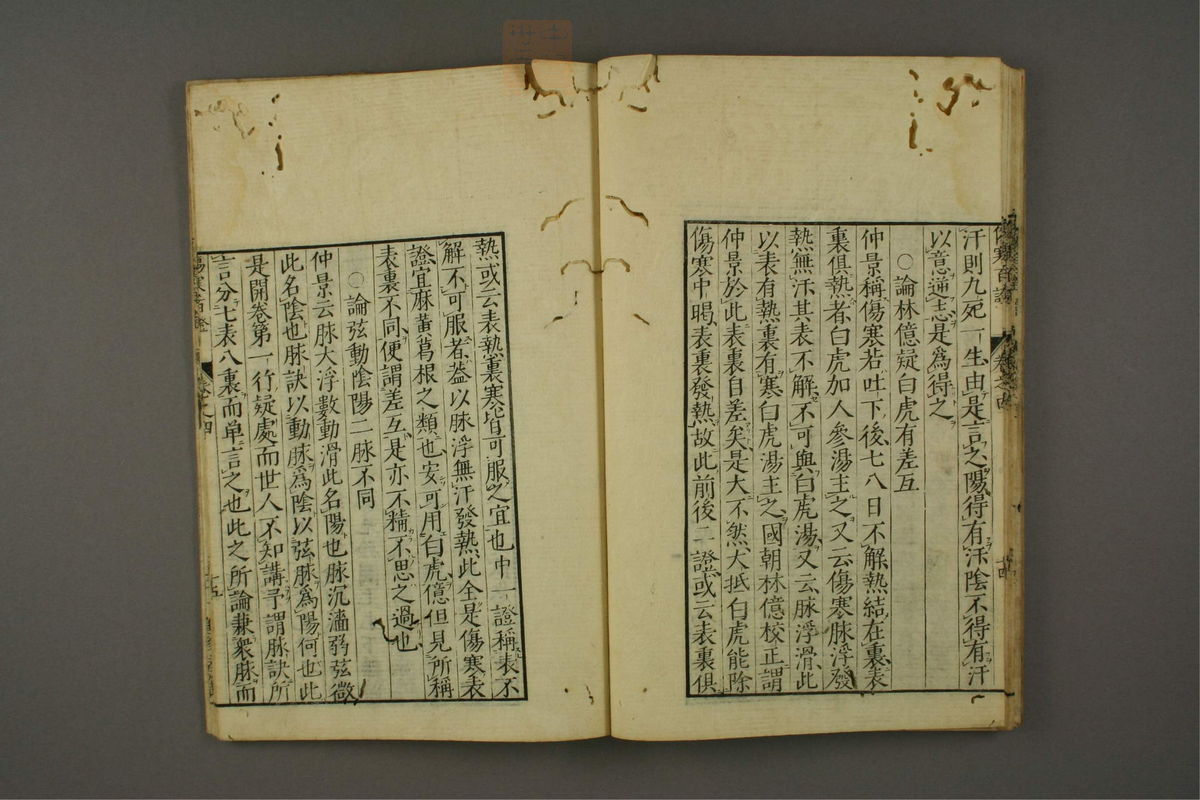 汗則九死一生由是言之陽得有汗陰不得有汗
以意逆志是爲得之
○論林億疑白虎有差互
仲景稱傷寒若吐下後七八日不解熱結在裏表
裏俱熱者白虎加人參湯主之又云傷寒脉浮發
熱無汗其表不解不可與白虎湯又云脉浮滑此
以表有熱裏有寒白虎湯主之國朝林億校正謂
仲景於此表裏自差矣是大不然大抵白虎能除
傷寒中暍表裏發熱故此前後二證或云表裏俱
熱或云表熱裏寒皆可服之宜也中一證稱表不
解不可服者蓋以脉浮無汗發熱此全是傷寒表
證宜麻黃葛根之類也安可用白虎億但見所稱
表裏不同便謂差互是亦不精不思之過也
○論弦動陰陽二脉不同
仲景云脉大浮數動滑此名陽也脉沉濇弱弦微
此名陰也脉訣以動脉爲陰以弦脉爲陽何也此
是開卷第一行疑處而世人不知講予謂脉訣所
言分七表八裏而单言之也此之所論兼衆脉而